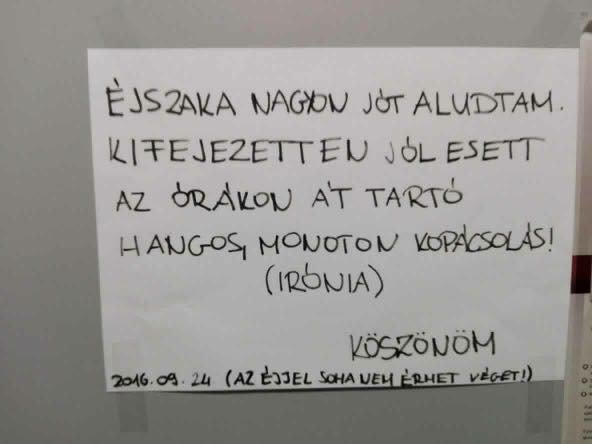 ÉJSZAKA NAGYON JÓT ALUDTAM.
KIFEJEZETTEN JÓL ESETT
AZ ÓRÁKON ÁT TARTÓ
HANGOS, MONOTON KOPÁCSOLÁS!
(IRÓNIA)
KÖSZÖNÖM
2016.09.24 (AZ ÉJJEL SOHA NEM ÉRHET VÉGET!)